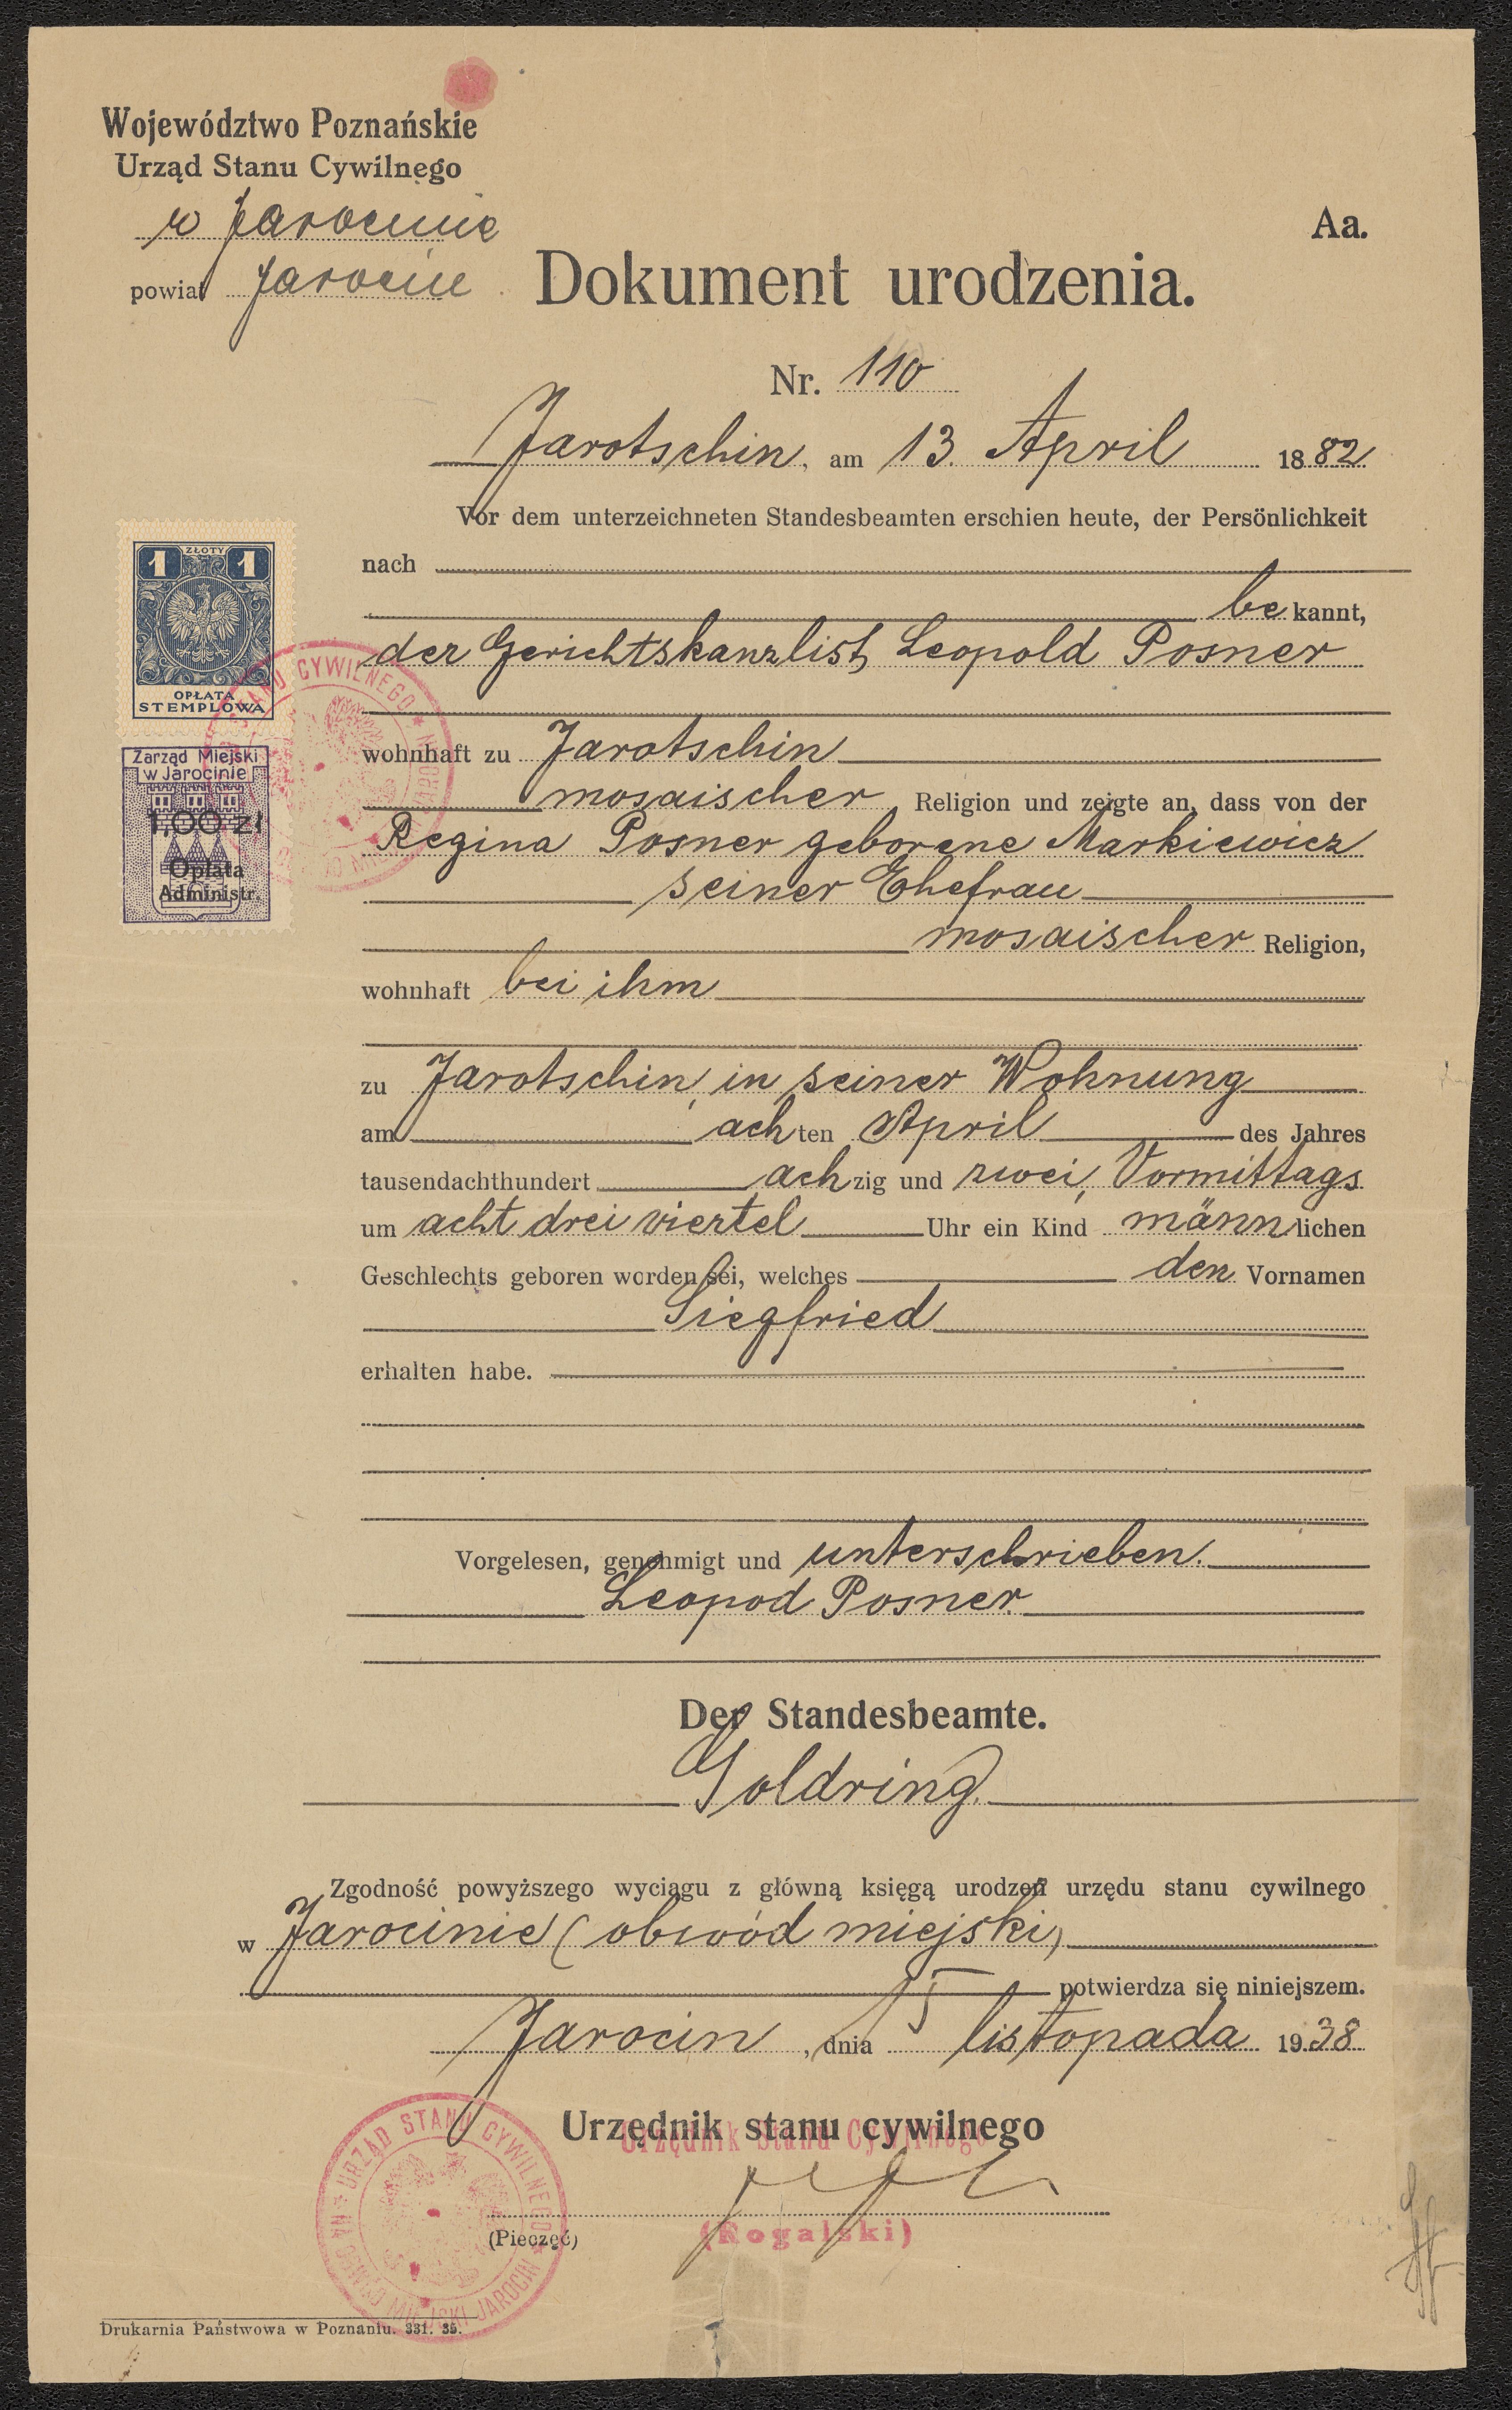 Województwo Poznańskie
Urząd Stanu Cywilnego
w Jarocinie
powiat Jarocin
Aa.
Dokument urodzenia.
Nr. 110
Jarotschin, am 13. April 1882
Vor dem unterzeichneten Standesbeamten erschien heute, der Persönlichkeit
nach
be kannt,
der Gerichtskanzlist Leopold Posner
wohnhaft zu Jarotschin
mosaischer Religion und zeigte an, dass von der
Regina Posner geborene Markiewicz
seiner Ehefrau
mosaischer Religion,
wohnhaft bei ihm
zu Jarotschin, in seiner Wohnung
am achten April des Jahres
tausendachthundert achzig und zwei, Vormittags
um acht drei viertel Uhr ein Kind männlichen
Geschlechts geboren worden sei, welches den Vornamen
Siegfried
erhalten habe.
Vorgelesen, genehmigt und unterschrieben.
Leopod Posner.
Der Standesbeamte.
Goldring.
Zgodność powyższego wyciągu z główną księgą urodzeń urzędu stanu cywilnego
w Jarocinie (obwód miejski)
potwierdza się niniejszem.
Jarocin, dnia 15 listopada 1938
Urzędnik stanu cywilnego
Urzędnik Stanu Cywilnego
(Pieczęć)
(Rogalski)
URZĄD STANU CYWILNEGO * NA OBWÓD MIEJSKI JAROCIN
Drukarnia Państwowa w Poznaniu. 331. 35.
1 ZŁOTY 1
OPŁATA
STEMPLOWA
Zarząd Miejski
w Jarocinie
1,00 zł
Opłata
Administr.